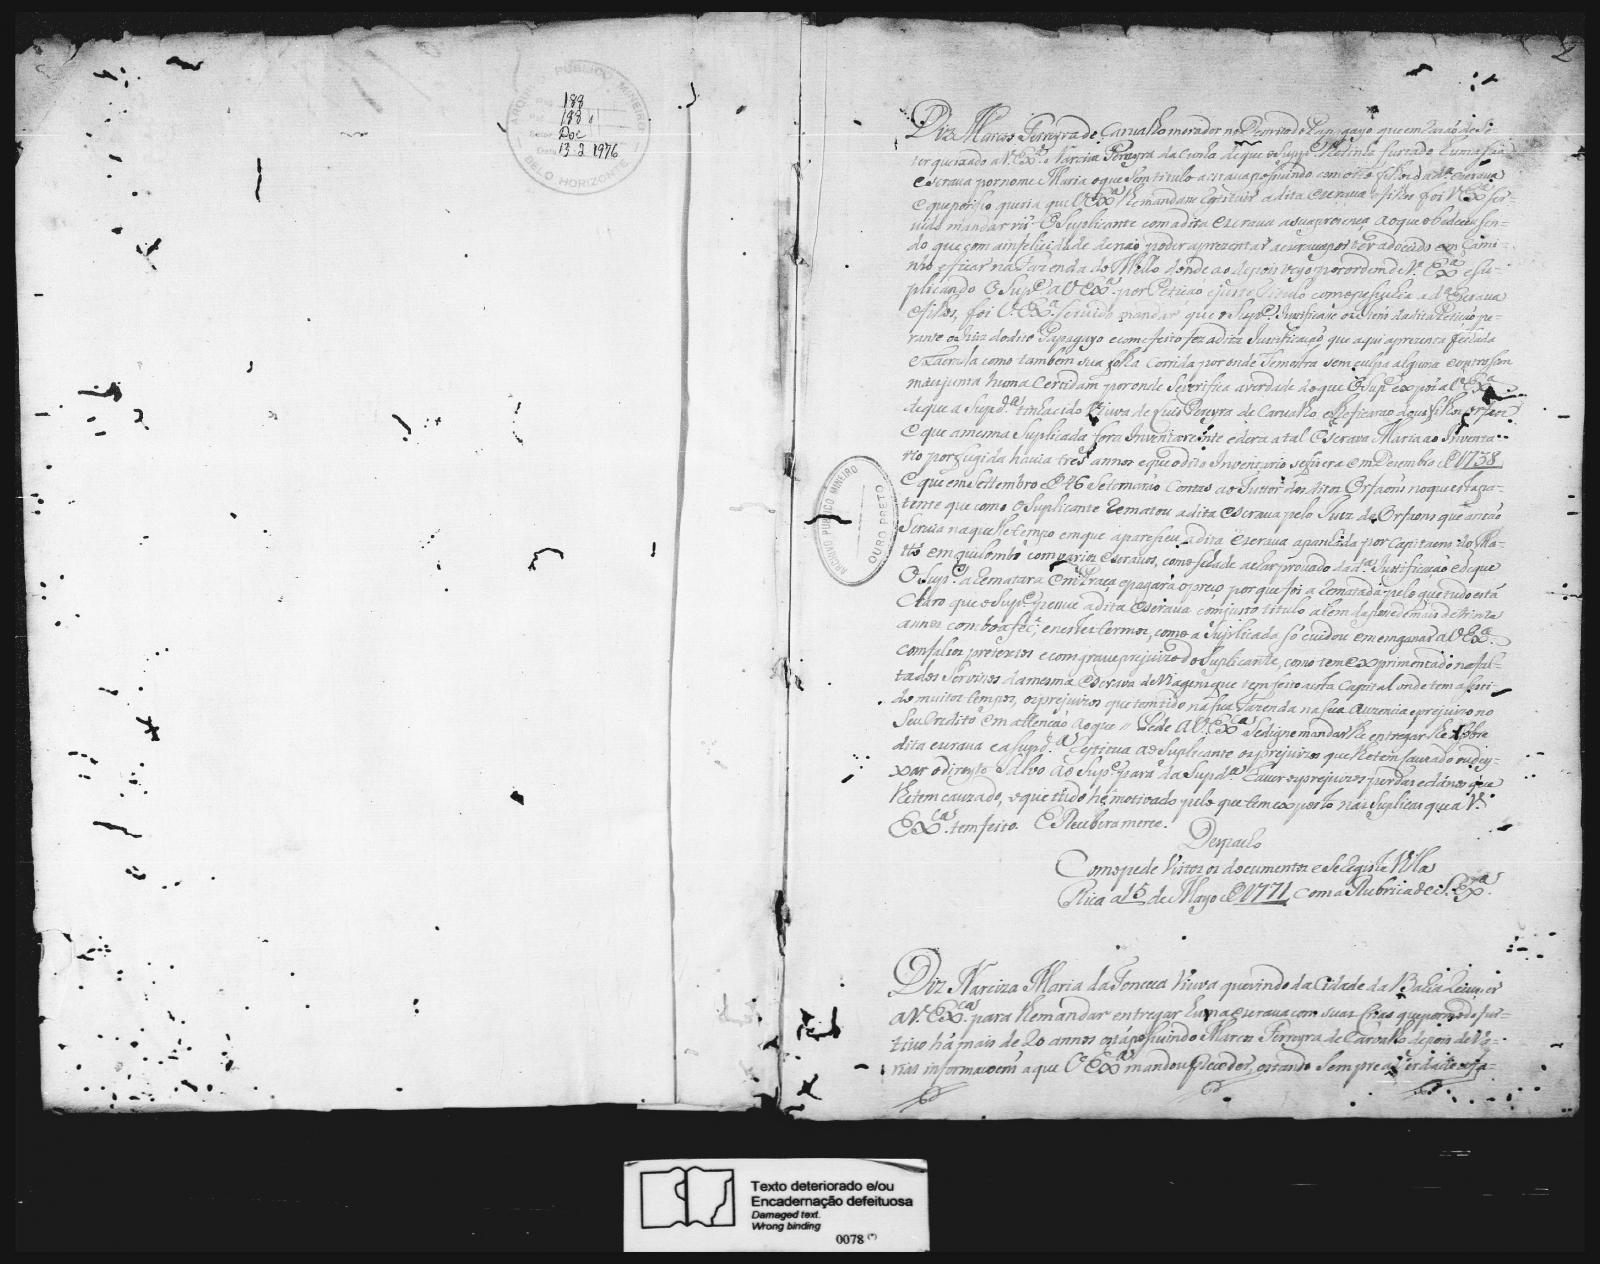 ARQUIVO PUBLICO MINEIRO
BELO HORIZONTE
188
188
Doc
13 2 1976
2
Diz Marcos Ferreyra de Carvalho morador no do Papagayo que em razão de Se
ter queixado a V. Exa. Narciza Pereyra da Cunha de que o Supp.e lhe tinha furtado huma sua
escrava por nome Maria e que sem titulo a estava possuindo com oito filhos da da. escrava
e que por isso queria que V. Exa. lhe mandase Restituir a dita escrava e filhos foi V. Exa. ser-
vido mandar vir o Suplicante com a dita escrava a sua prezença ao que obedeceu sen-
do que com a infelicidade de não poder aprezentar a escrava por ter adoecido em cami-
nho e ficar na Fazenda do Mello donde ao depois veyo por ordem de V. Exa. e su-
plicando o Supe. a V. Exa. por Petição e justo titulo como pesuhia a da. Escrava
e filhos, foi V. Exa. servido mandar que o Supe. Justificase o item da dita Petição pe-
rante o Juiz do dito Papagayo e com efeito fez a dita Justificação que aqui aprezenta fechada
e Lacrada como tambem sua folha Corrida por onde Se mostra sem culpa alguma e outro sim
mais junta huma Certidam por onde Se verifica a verdade do que o Supe. expôs a V. Exa.
de que a Supda. tinha cido Viuva de Luis Pereyra de Carvalho e lhe ficarão dous filhos orfãos
e que a mesma Suplicada fora Inventariante e dera a tal Escrava Maria ao Inventa-
rio por fugida havia tres annos e que o dito Inventario se fizera em Dezembro de 1738
e que em Settembro de 46 se tomarão Contas ao Tuttor dos ditos Orfãons no que esta pa-
tente que como o Suplicante Rematou a dita escrava pelo Juiz de Orfaons que então
Servia naquelle tempo em que apareseu a dita Escrava apanhada por Capitaens do Ma-
tto em quilombo com varios escravos, como se há de achar provado da da. Justificação e de que
o Supe. a Rematara em Praça e pagara o preço por que foi a Rematada pelo que tudo está
Claro que o Supe. pesue a dita escrava com justo titulo alem da pose de mais de trinta
annos com boa fee, e nestes termos, como a Suplicada só cuidou em enganar a V. Exa.
com falsos pretextos e com grave prejuizo do Suplicante, como tem exprimentado na fal-
ta dos Servisos da mesma escrava de Viagens que tem feito a esta Capital onde tem asisti-
do muitos tempos, os prejuizos que tem tido na sua Fazenda na sua auzencia e prejuizo no
Seu Credito em attenção ao que // Pede a V. Exa. Se digne mandar lhe entregar lhe a sobre
dita escrava e a supda. Restitua ao Suplicante os prejuizos que lhe tem cauzado ou dey-
xar o direyto Salvo ao Supe. para da Supda. haver os prejuizos perdas e danos que
lhe tem cauzado, o que tudo he motivado pelo que tem exposto nas Suplicas que a V.
Exa. tem feito. E Receberá merce.
Despacho
Como pede Vistos os documentos e Se registe Villa
Rica a 15 de Mayo de 1771, Com a Rubrica de S. Exa.
Diz Narciza Maria da Fonceca Viuva que vindo da Cidade da Bahia
a V. Exa. para lhe mandar entregar huma escrava com suas crias que por modo fur-
tivo há mais de 20 annos está possuindo Marcos Ferreyra de Carvalho depois de Vá-
rias informaçoens a que V. Exa. mandou proceder, estando sempre a verdade
ARCHIVO PUBLICO MINEIRO
OURO PRETO
Texto deteriorado e/ou
Encadernação defeituosa
Damaged text.
Wrong binding
0078 (*)